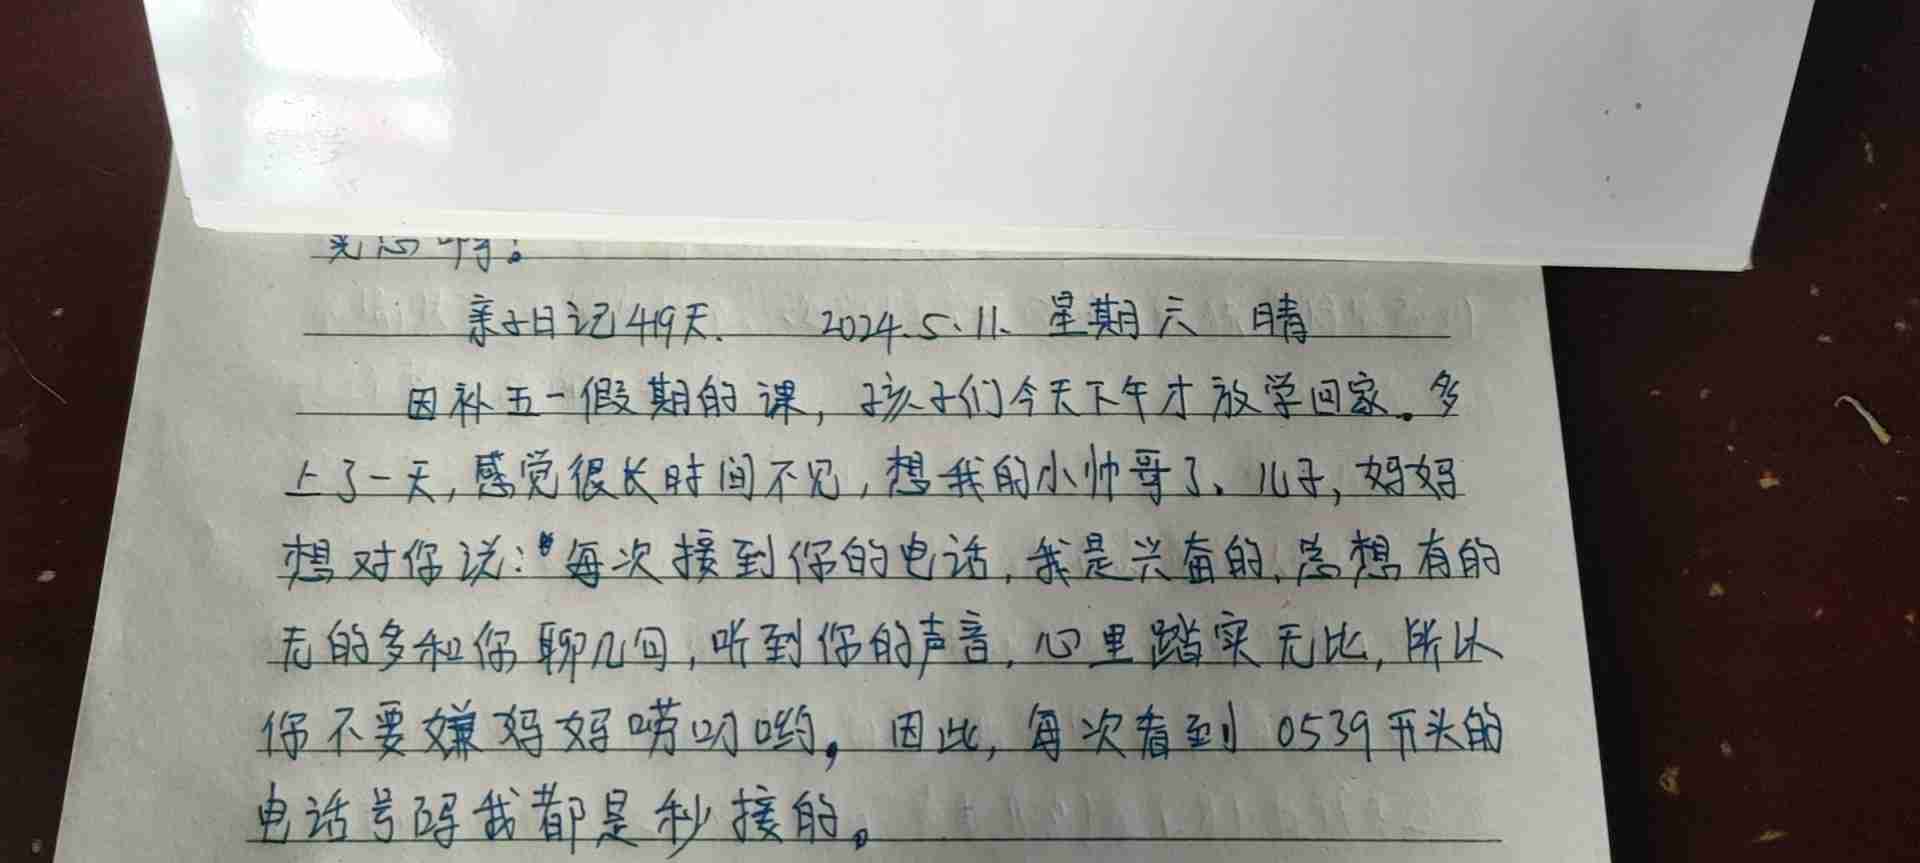 亲子日记419天. 2024.5.11. 星期六 晴
因补五一假期的课,孩子们今天下午才放学回家。多
上了一天,感觉很长时间不见,想我的小帅哥了、儿子,妈妈
想对你说:“每次接到你的电话,我是兴奋的,总想有的
无的多和你聊几句,听到你的声音,心里踏实无比,所以
你不要嫌妈妈唠叨哟。因此,每次看到0539开头的
电话号码我都是秒接的。